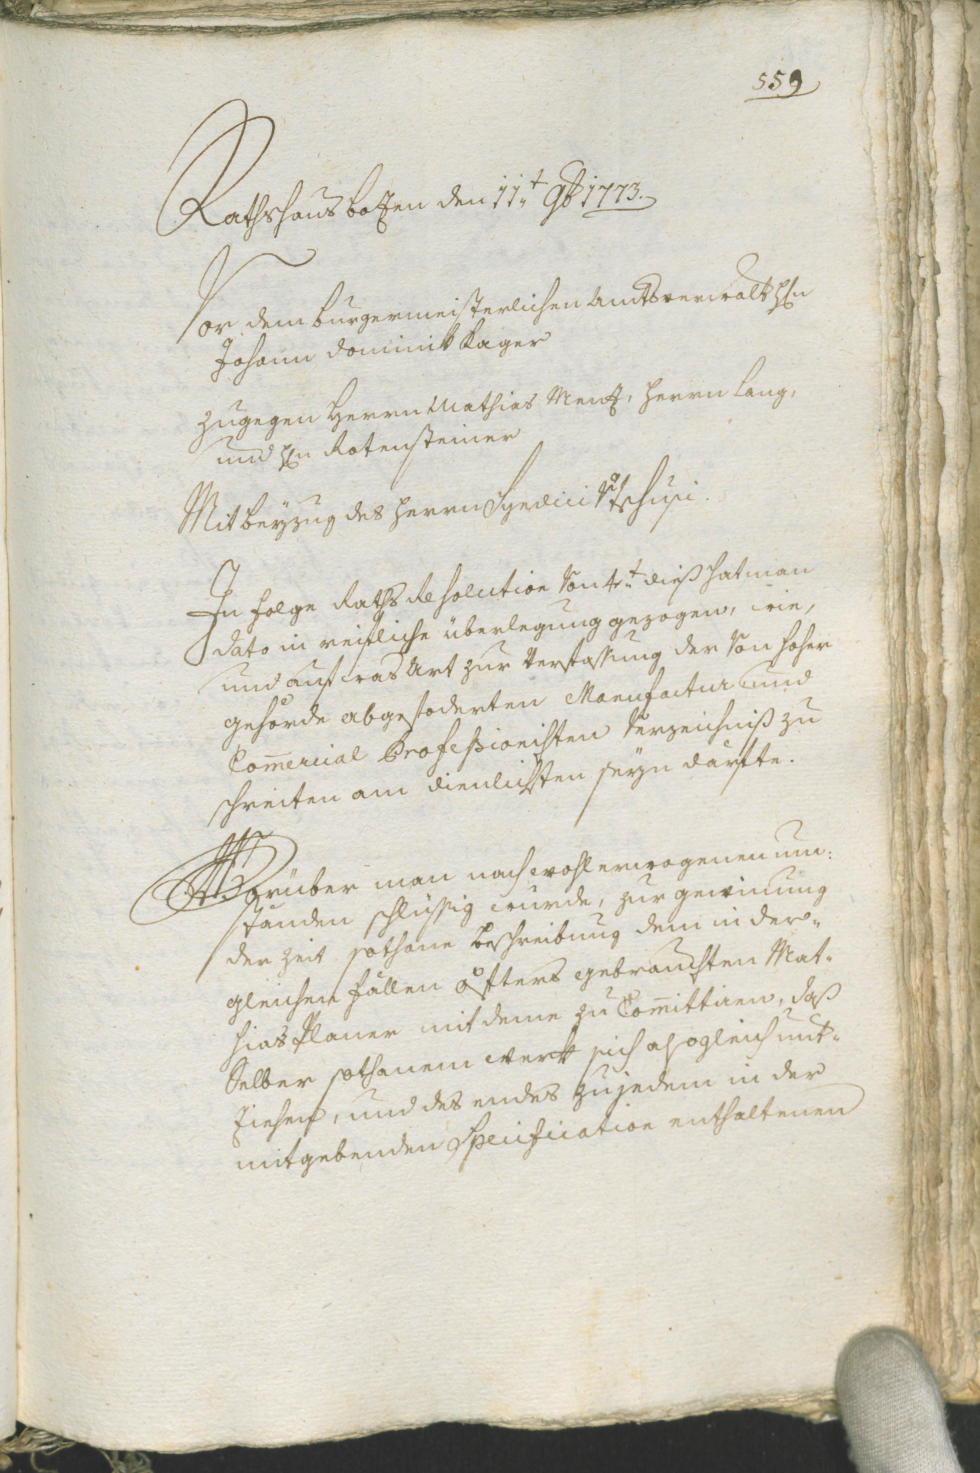 559
Rathshaus Botzen den 11.t 9b 1773.
Vor dem burgermeisterlichen Amtsverwalt Hn
Johann Dominik Kager
zugegen Herrn Mathias Menz, Herrn Lang,
und Hn Rotensteiner
Mit beyzug des Herrn Syndici
In folge Raths Resolution von 4.t dieß hat man
dato in reifliche überlegung gezogen, wie,
und auf was Art zur Verfassung der von hoher
gehörde abgefoderten Manufactur und
Com̅ercial Professionisten Verzeichniß zu
schreiten am dienlichsten seyn därfte.
Worüber man nach wohl erwogenen um:
ständen schlüssig wurde, zur gewinnung
der Zeit sothane beschreibung dem in der:
gleichen fällen öfters gebrauchten Mat:
hias Planer mit deme zu Com̅ittiren, daß
Selber sothanem werk sich alsogleich unt:
ziehen, und des endes zu jedem in der
mitgebenden Specification enthaltenen